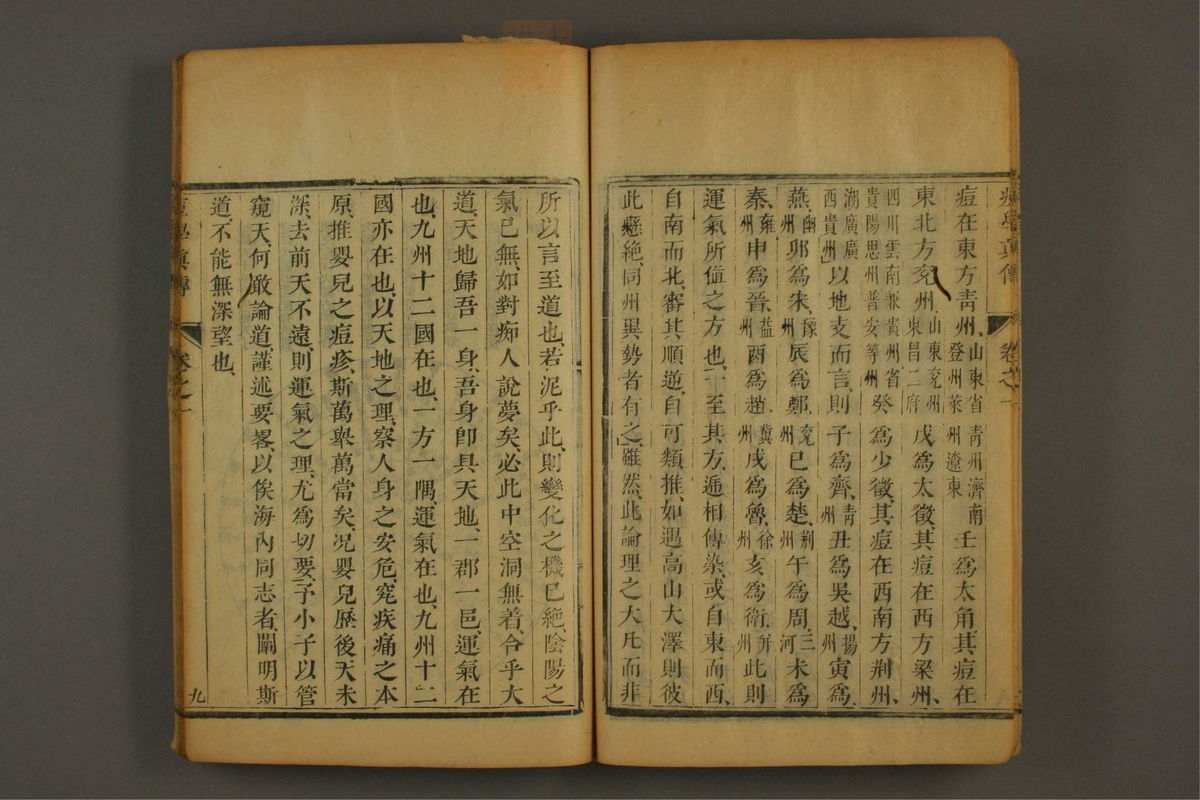 痘學真傳 卷之一
痘在東方青州、山東省青州濟南登州萊州遼東壬爲太角其痘在
東北方兖州、山東兖州東昌二府戊爲太徵、其痘在西方梁州、
四川雲南兼貴州省貴陽思州普安等州癸爲少徵、其痘在西南方荆州、
湖廣廣西貴州以地支而言、則子爲齊、青州丑爲吳越、揚州寅爲
燕、幽州卯爲宋、豫州辰爲鄭、兖州巳爲楚、荆州午爲周、三河未爲
秦、雍州申爲晉、益州酉爲趙、冀州戌爲魯、徐州亥爲衛、并州此則
運氣所値之方也、一至其方、遞相傳染、或自東而西、
自南而北、審其順逆、自可類推、如遇高山大澤則彼
此懸絶、同州異勢者有之、雖然、此論理之大凡而非
所以言至道也、若泥乎此、則變化之機已絶、陰陽之
氣已無、如對痴人說夢矣、必此中空洞無着、合乎大
道、天地歸吾一身、吾身卽具天地、一郡一邑、運氣在
也、九州十二國在也、一方一隅、運氣在也、九州十二
國亦在也、以天地之理、察人身之安危、究疾痛之本
原、推嬰兒之痘疹、斯萬舉萬當矣、况嬰兒歷後天未
深、去前天不遠、則運氣之理、尤爲切要、予小子以管
窺天、何敢論道、謹述要畧、以俟海內同志者、闡明斯
道、不能無深望也、
痘學真傳 卷之一 九